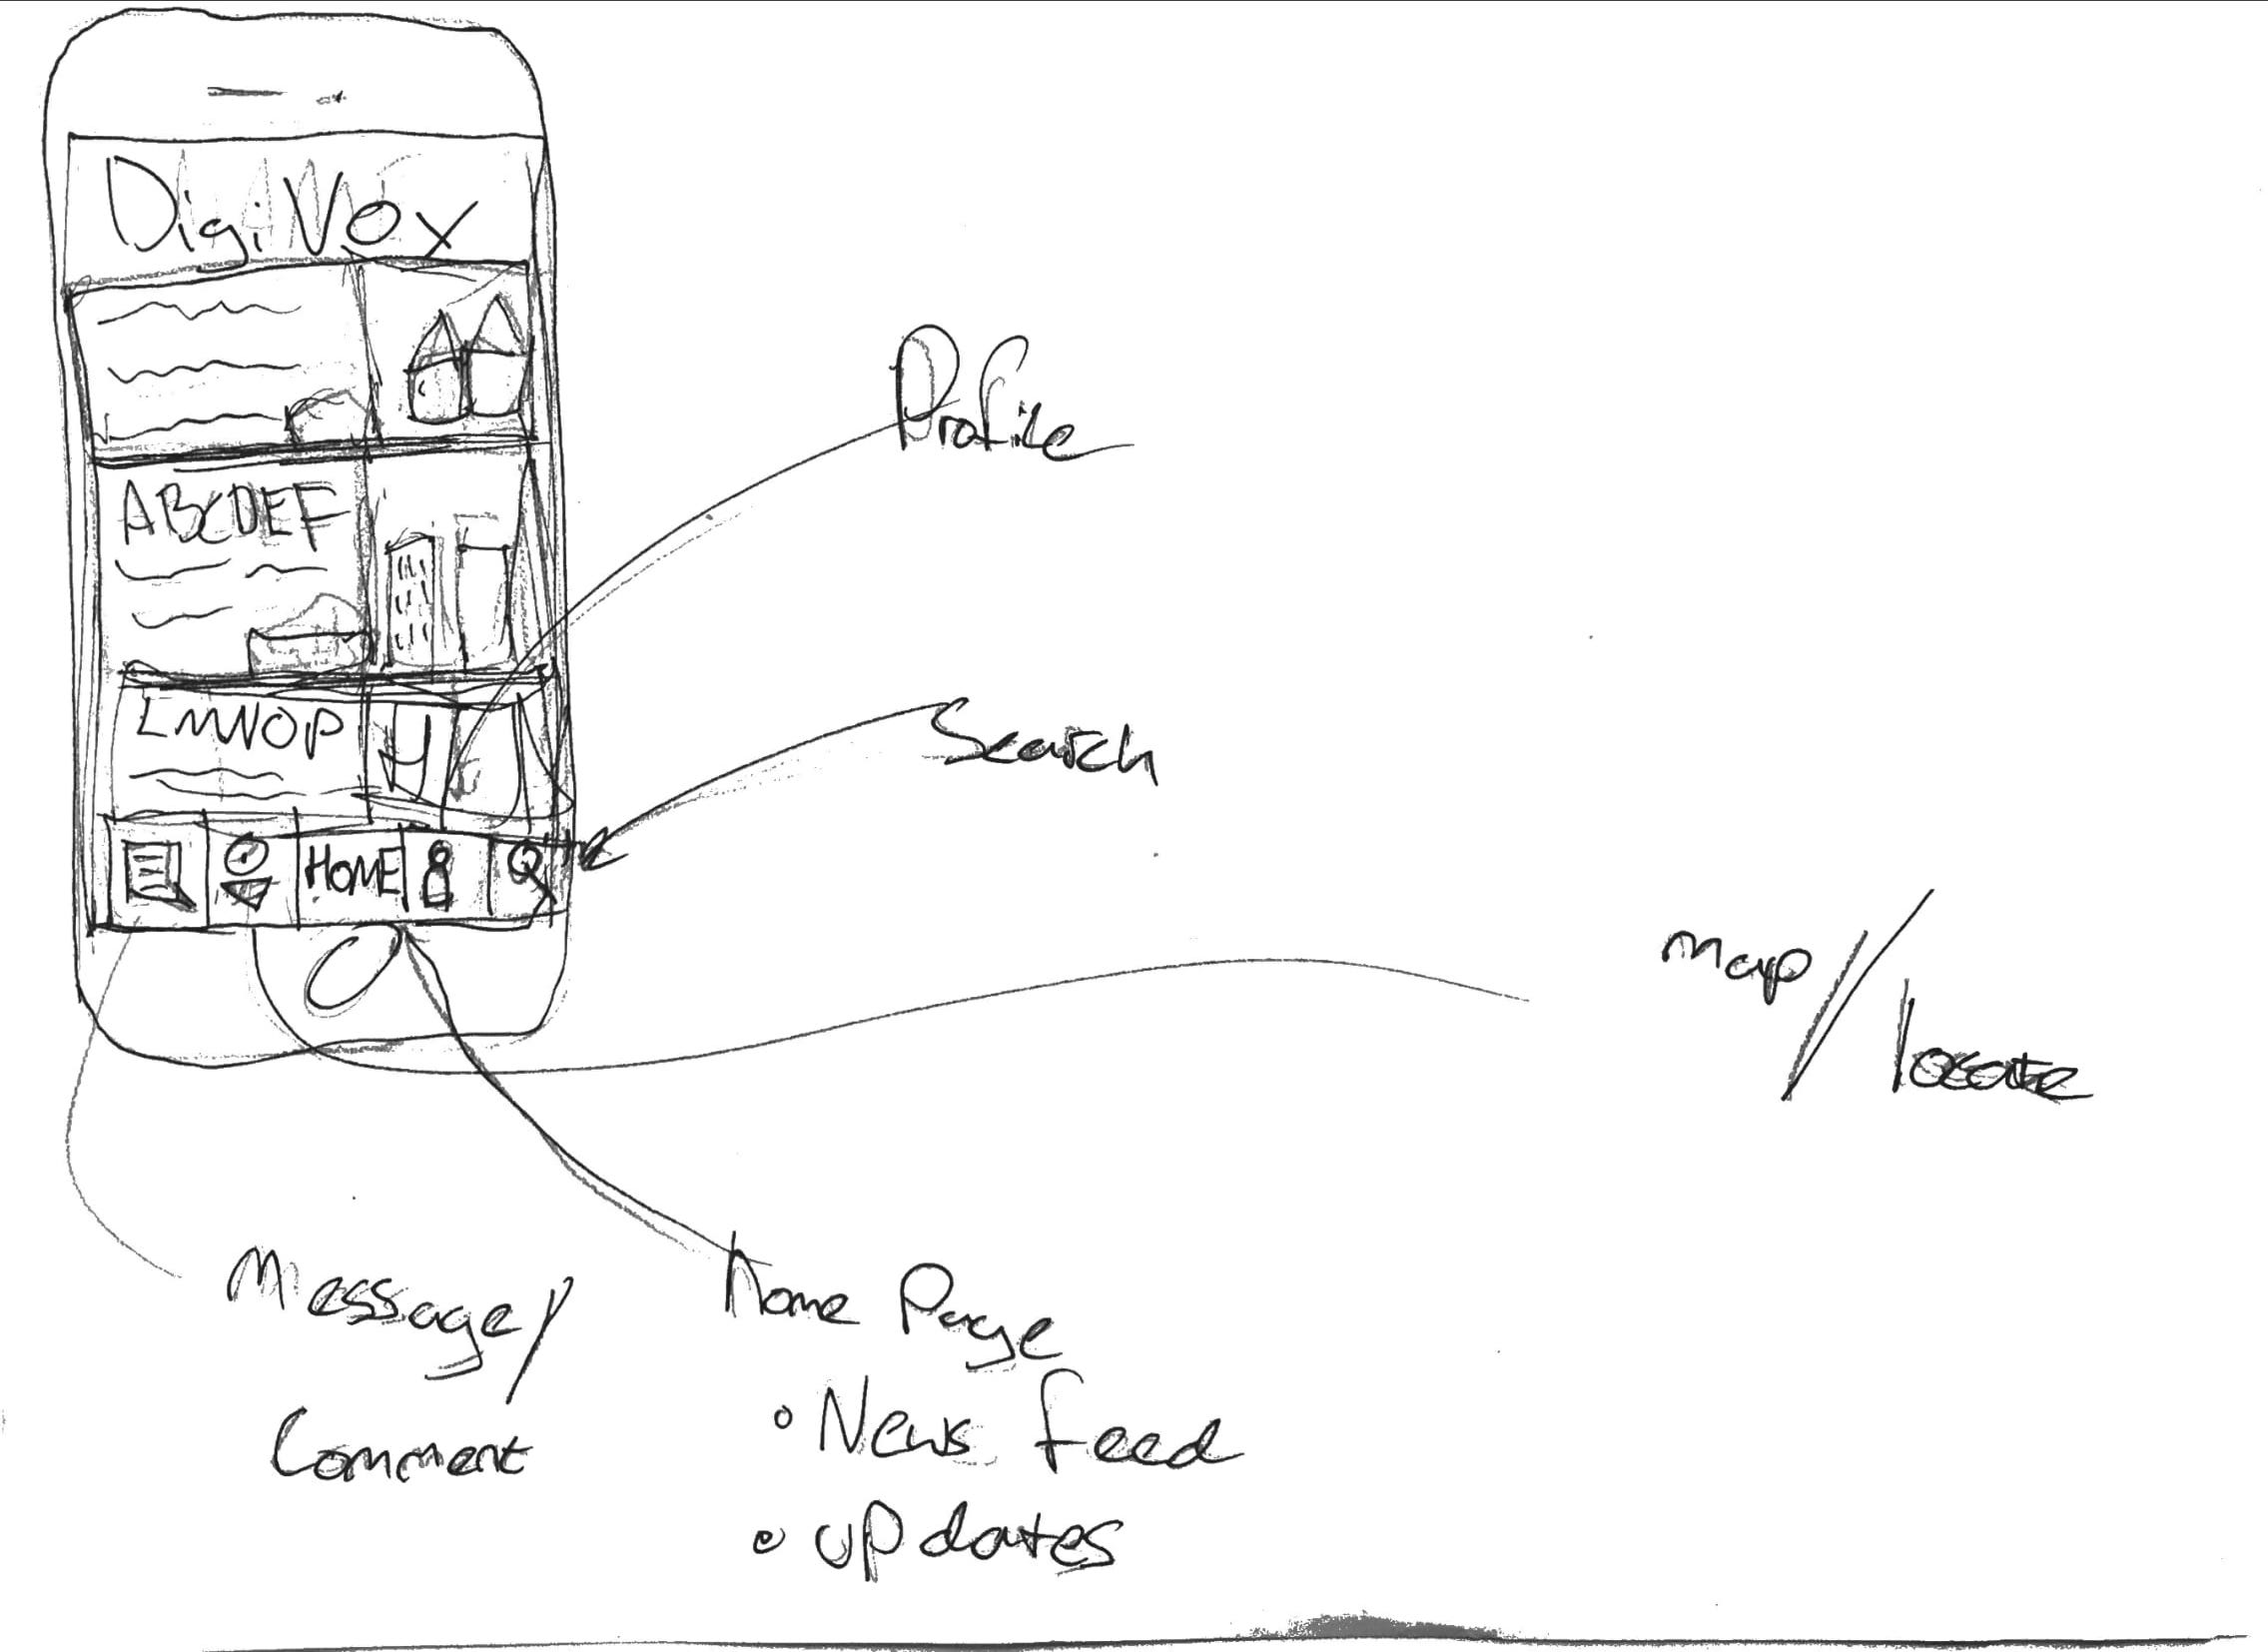 DigiVox
ABCDEF
LMNOP
HOME
Profile
Search
map/
locate
Message/
Comment
home Page
• News feed
• updates